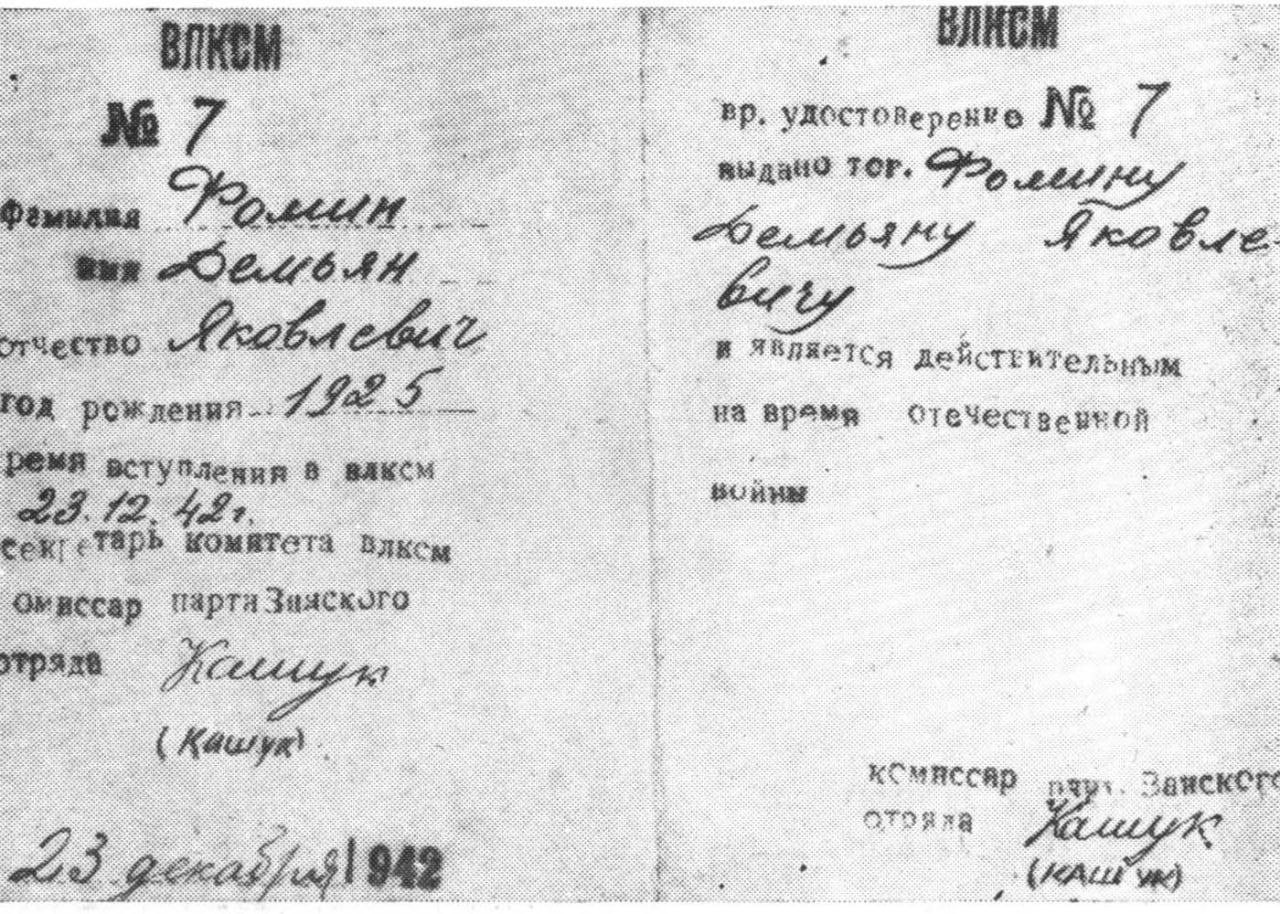 ВЛКСМ
№ 7
фамилия Фомин
имя Демьян
отчество Яковлевич
год рождения 1925
ремя вступления в влксм
23.12.42г.
секретарь комитета влксм
омиссар партиЗанского
отряда Кашук
(Кашук)
23 декабря 1942
ВЛКСМ
вр. удостоверение № 7
выдано тов. Фомину
Демьяну Яковле-
вичу
и является действительным
на время отечественной
войны
комиссар парт. Занского
отряда Кашук
(КАШУК)